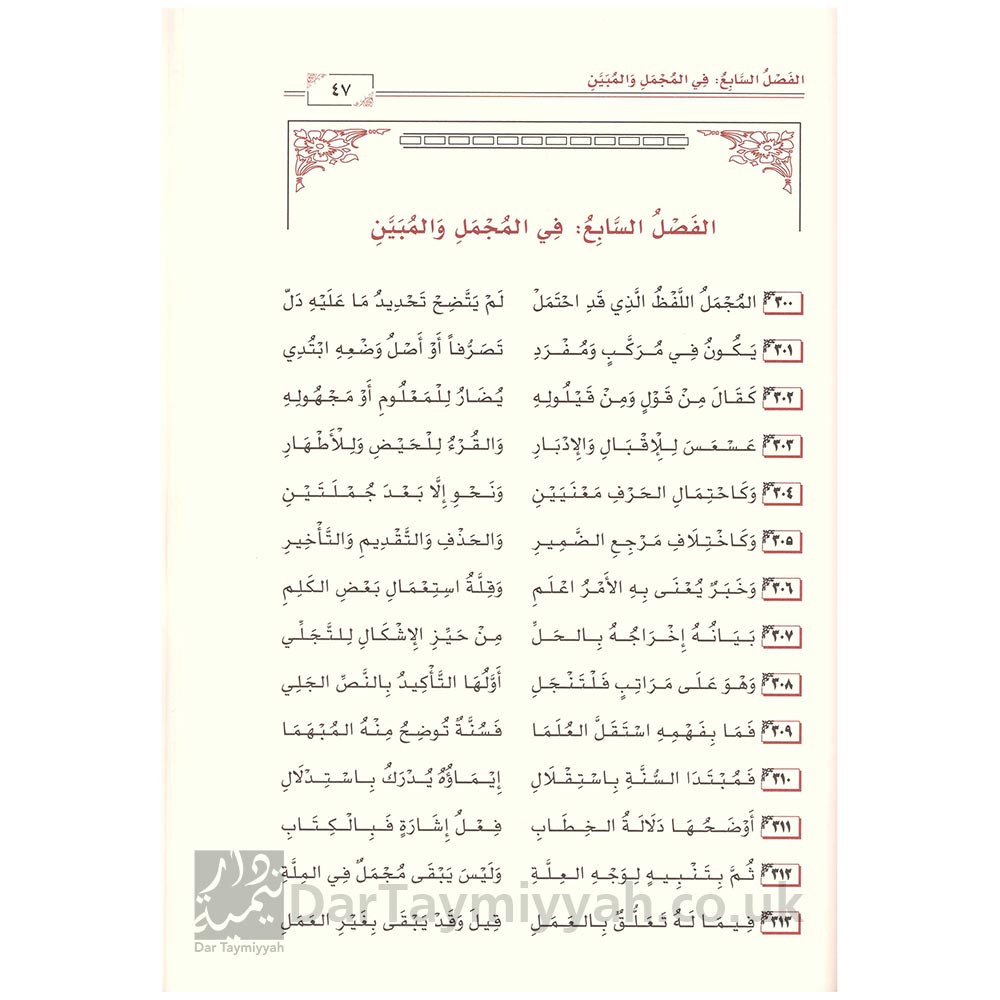 الفَصْلُ السَّابِعُ: فِي المُجْمَلِ وَالمُبَيَّنِ
٤٧
الفَصْلُ السَّابِعُ: فِي المُجْمَلِ وَالمُبَيَّنِ
٣٠٠ المُجْمَلُ اللَّفْظُ الَّذِي قَدِ احْتَمَلْ لَمْ يَتَّضِحْ تَحْدِيدُ مَا عَلَيْهِ دَلّ
٣٠١ يَكُونُ فِي مُرَكَّبٍ وَمُفْرَدِ تَصَرُّفاً أَوْ أَصْلُ وَضْعِهِ ابْتُدِي
٣٠٢ كَقَالَ مِنْ قَوْلٍ وَمِنْ قَيْلُولِهِ يُضَارُ لِلْمَعْلُومِ أَوْ مَجْهُولِهِ
٣٠٣ عَسْعَسَ لِلْإِقْبَالِ وَالإِدْبَارِ وَالقُرْءُ لِلْحَيْضِ وَلِلْأَطْهَارِ
٣٠٤ وَكَاحْتِمَالِ الحَرْفِ مَعْنَيَيْنِ وَنَحْوِ إِلَّا بَعْدَ جُمْلَتَيْنِ
٣٠٥ وَكَاخْتِلَافِ مَرْجِعِ الضَّمِيرِ وَالحَذْفِ وَالتَّقْدِيمِ وَالتَّأْخِيرِ
٣٠٦ وَخَبَرٌ يُعْنَى بِهِ الأَمْرُ اعْلَمِ وَقِلَّةُ اسْتِعْمَالِ بَعْضِ الكَلِمِ
٣٠٧ بَيَانُهُ إِخْرَاجُهُ بِالحَلِّ مِنْ حَيِّزِ الإِشْكَالِ لِلتَّجَلِّي
٣٠٨ وَهْوَ عَلَى مَرَاتِبٍ فَلْتَنْجَلِ أَوَّلُهَا التَّأْكِيدُ بِالنَّصِّ الجَلِي
٣٠٩ فَمَا بِفَهْمِهِ اسْتَقَلَّ العُلَمَا فَسُنَّةٌ تُوضِحُ مِنْهُ المُبْهَمَا
٣١٠ فَمُبْتَدَا السُّنَّةِ بِاسْتِقْلَالِ إِيْمَاؤُهُ يُدْرَكُ بِاسْتِدْلَالِ
٣١١ أَوْضَحُهَا دَلَالَةُ الخِطَابِ فِعْلُ إِشَارَةٍ فَبِالْكِتَابِ
٣١٢ ثُمَّ بِتَنْبِيهٍ لِوَجْهِ العِلَّةِ وَلَيْسَ يَبْقَى مُجْمَلٌ فِي المِلَّةِ
٣١٣ فِيمَا لَهُ تَعَلُّقٌ بِالعَمَلِ قِيلَ وَقَدْ يَبْقَى بِغَيْرِ العَمَلِ
دار تيمية
Dar Taymiyyah
DarTaymiyyah.co.uk